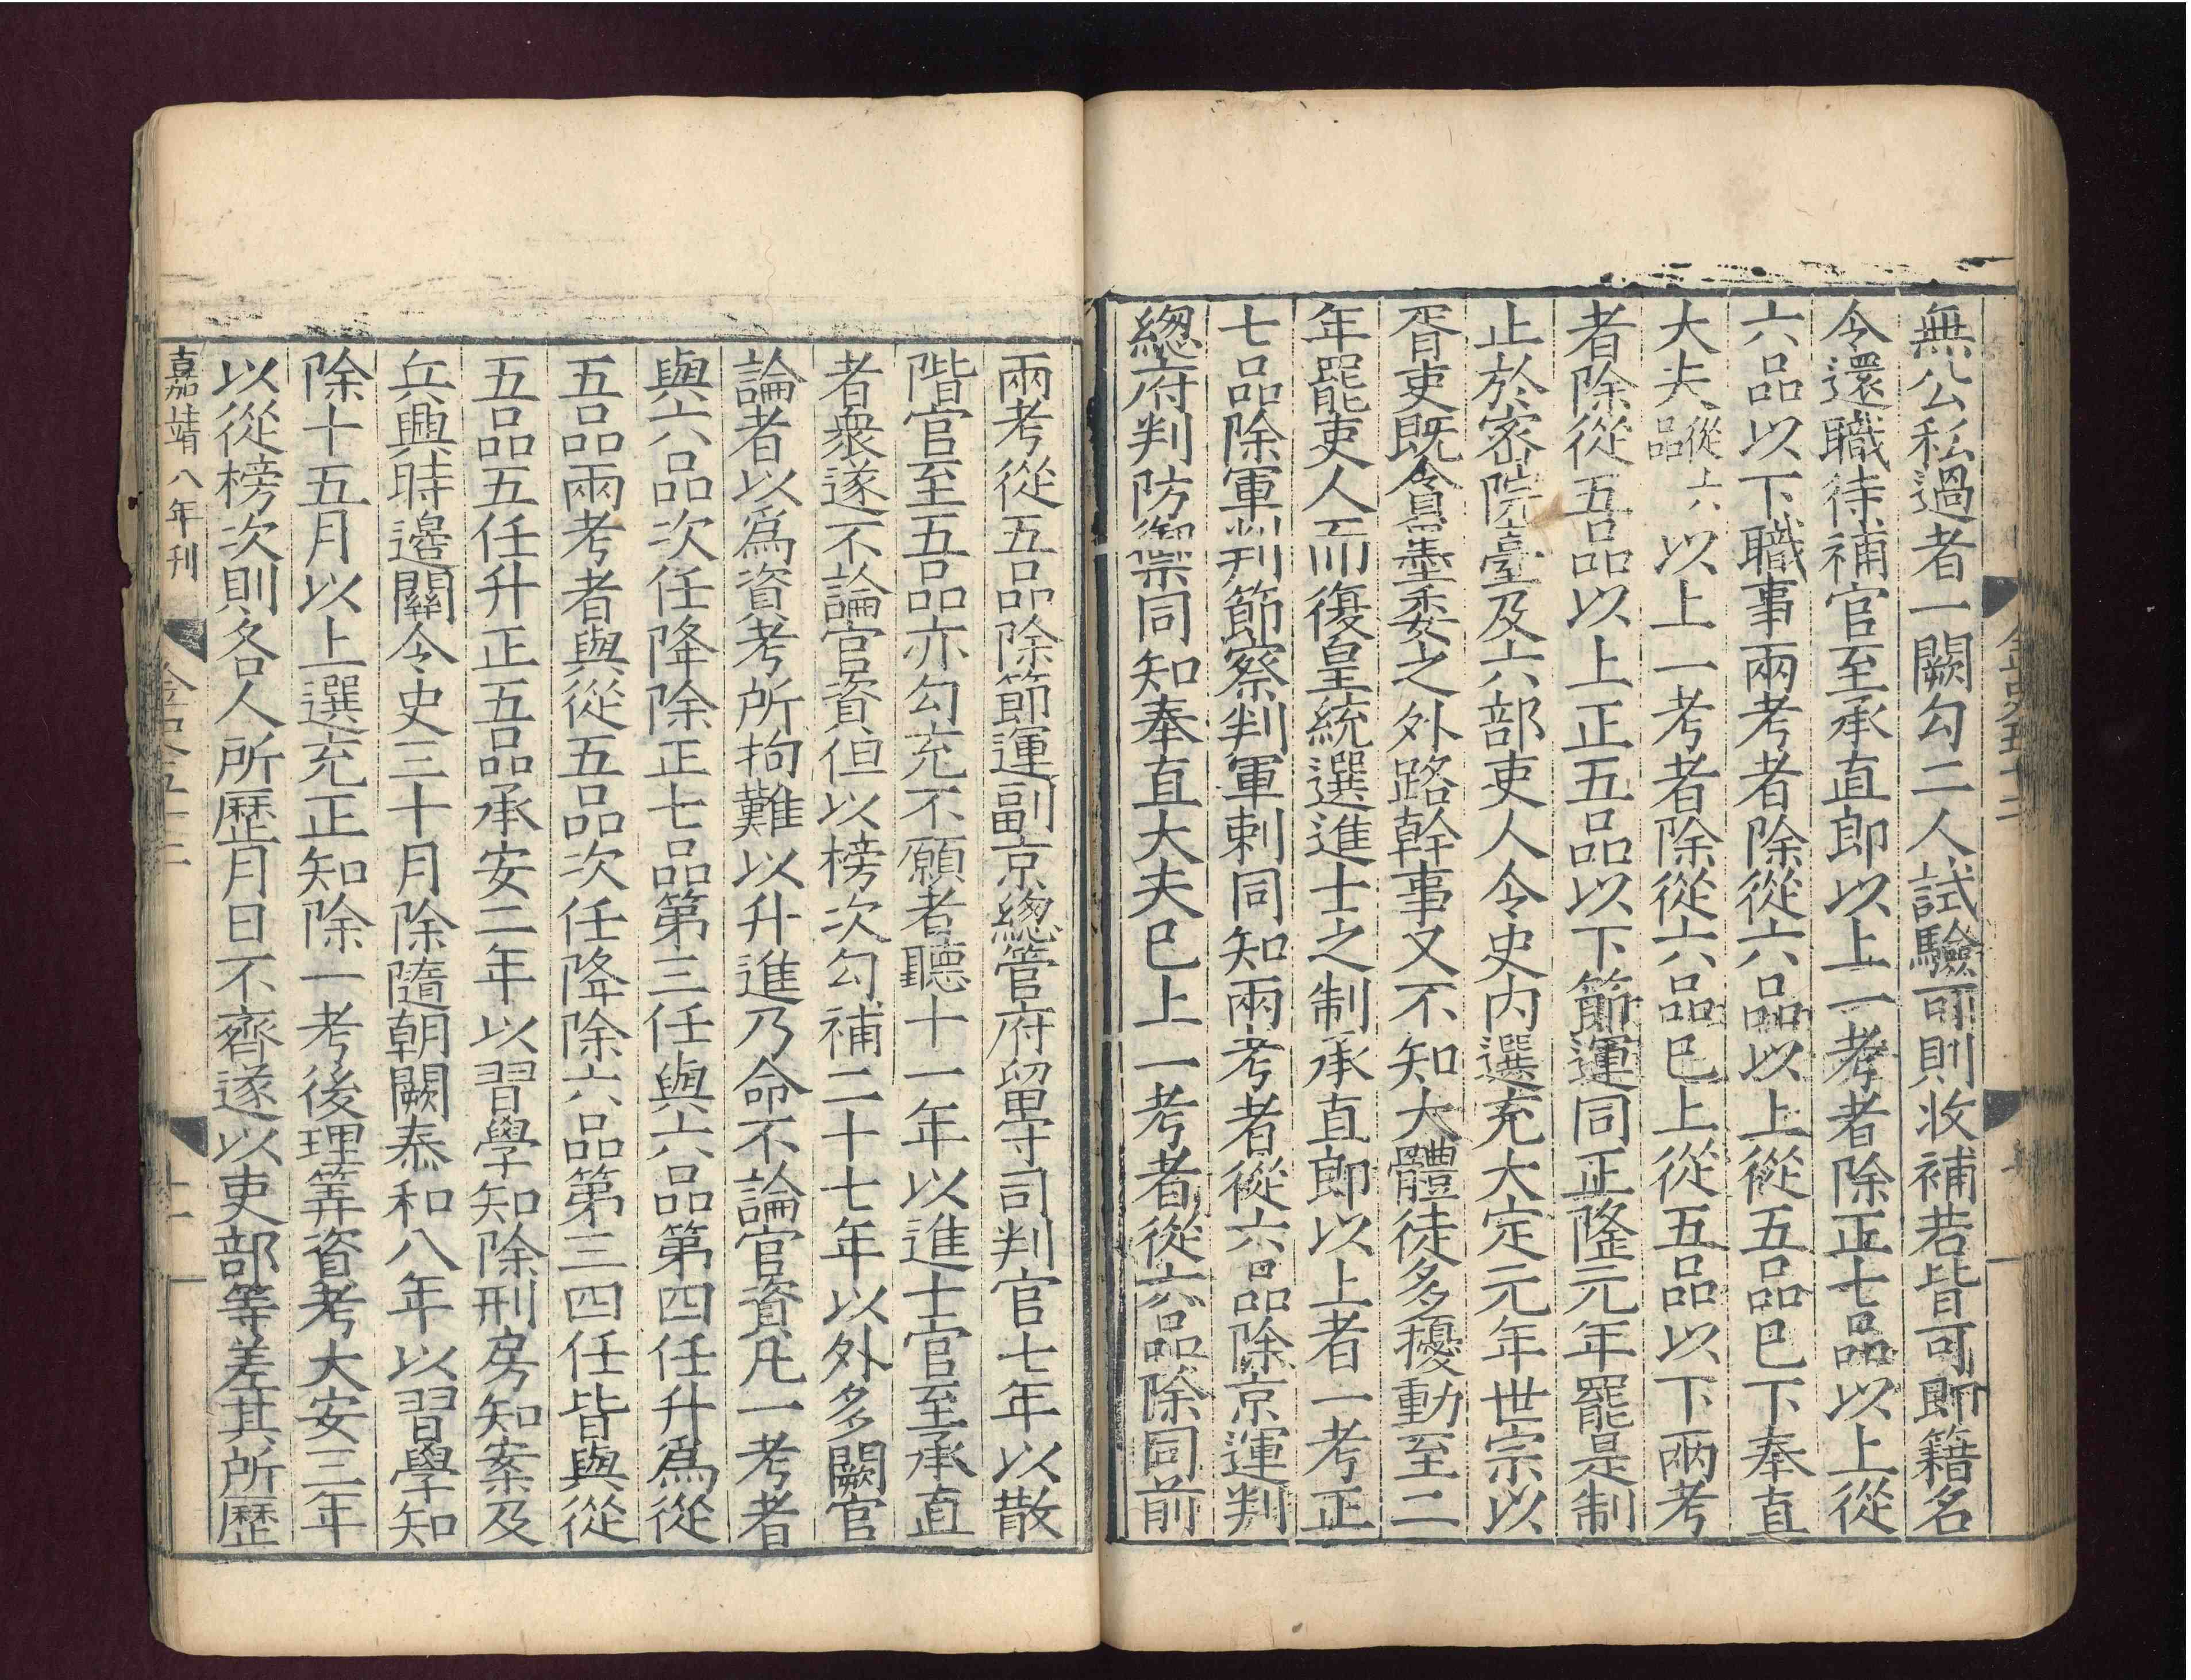 無公私過者一闕勾二人試驗可則收補若皆可即籍名
令還職待補官至承直郎以上一考者除正七品以上從
六品以下職事兩考者除從六品以上從五品巳下奉直
大夫從六品上以上一考者除從六品巳上從五品以下兩考
者除從五品以上正五品以下節運同正隆元年罷是制
止於密院臺及六部吏人令史内選充大定元年世宗以
胥吏既貪墨委之外路幹事又不知大體徒多擾動至二
年罷吏人而復皇統選進士之制承直郎以上者一考正
七品除軍判節察判軍刺同知兩考者從六品除京運判
緫府判防禦同知奉直大夫巳上一考者從六品除同前
兩考從五品除節運副京緫管府留守司判官七年以散
階官至五品亦勾充不願者聽十一年以進士官至承直
者衆遂不論官資但以榜次勾補二十七年以外多闕官
論者以爲資考所拘難以升進乃命不論官資凡一考者
與六品次任降除正七品第三任與六品第四任升爲從
五品兩考者與從五品次任降除六品第三四任皆與從
五品五任升正五品承安二年以習學知除刑房知案及
兵興時邊關令史三十月除隨朝闕泰和八年以習學知
除十五月以上選充正知除一考後理筭資考大安三年
以從榜次則各人所歷月日不齊遂以吏部等差其所歷
嘉靖八年刊 金史五十二 十一